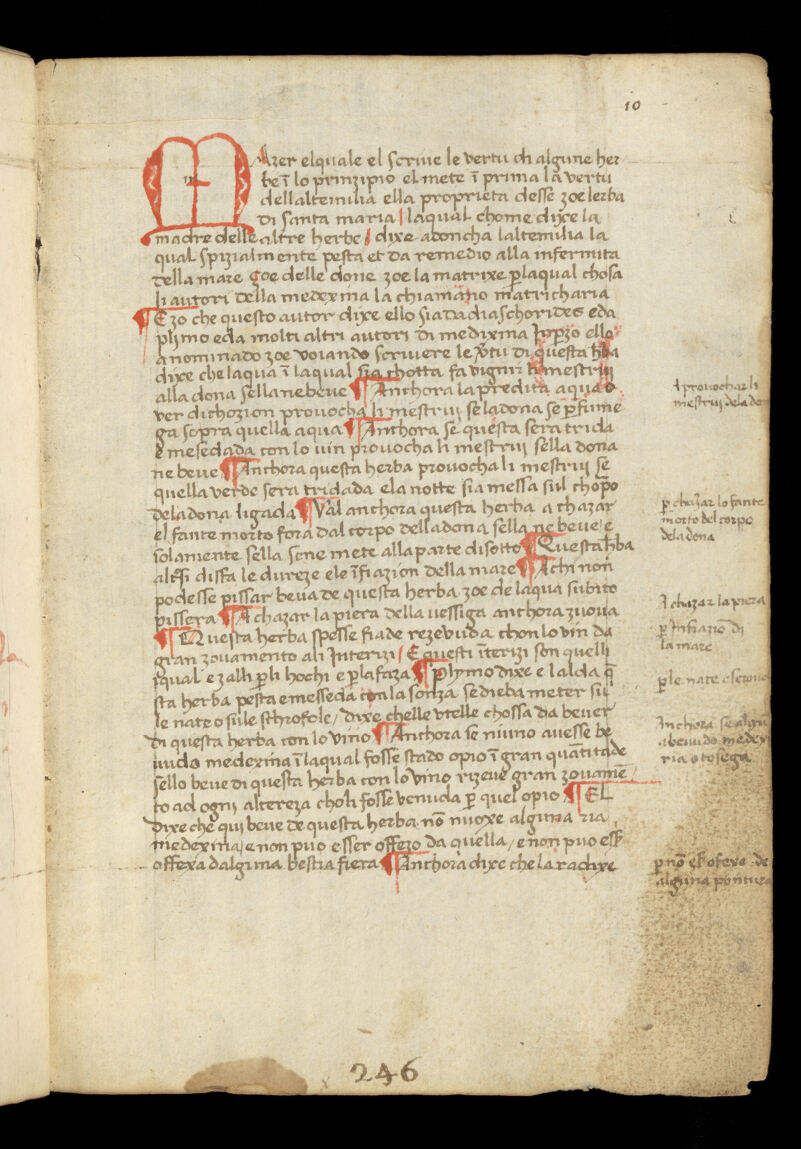 10
MAzer elquale el scriue le vertu di algune her
be ī lo prinzipio el mete ī prima la vertu
dellaltemilia ella proprieta desse zoe lerba
di santa maria / laqual chome dixe la
madre delle altre herbe / dixe adoncha laltemilia la
qual spizialmente pesta et da remedio alla infermita
della mare zoe delle done zoe la matrixe p̄laqual chosa
li autori della medexina la chiamano matricharia
¶ E zo che questo autor dixe ello sia da diaschorides e da
plymo e da molti altri autori di medixina Inp̄zo ello
a nominado zoe voiando scriuere le v̄tu di questa h̄ba
dixe che laqua ī laqual sia chotta fa vignir li mestrui
alla dona sella ne beue ¶ Anchora la predita aqua o
ver dichozion prouocha li mestruj se la dona se p̄fume
ga sopra quella aqua ¶ Anchora se questa sera trida
e mesedada con lo uin prouocha li mestruj sella dona
ne beue ¶ Anchora questa herba prouocha li mestruj se
quella verde sera tridada e la notte sia messa sul chorpo
dela dona ligada ¶ Val anchora questa herba a chazar
el fante morto fora dal corpo della dona sella ne beue / e
solamente sella sene mete alla parte di sotto ¶ Questa h̄ba
alt̄si disfa le dureze e le īfiazion della mare ¶ A chi non
podesse pissar beua de questa herba zoe de laqua subito
pissera ¶ A chazar la piera della uessiga anchora zuoua
¶ Questa herba spesse fiade rezevuda chon lo vin da
gran zouamento ali Interizi / E questi īterizi son quelli
squal e zalli p̄ li hochi e p̄ la faza ¶ plymo dixe e lalda q̄
sta herba pesta e messeda con la sonza se dieba meter su
le nate o sule schrofole / dixe chelle vtelle chossa da beuer
di questa herba con lo vino ¶ Anchora se niuno auesse be
uudo medexina ī laqual fosse stado opio ī gran quātitade
sello beue di questa herba con lo vino rizeue gran zouamē
to ad ogni altereza choli fosse venuda p̄ quel opio ¶ EL
dixe che qui beue de questa herba nō nuoxe alguna ria
medexina / e non puo esser offexo da quella / e non puo es̄s
offexa dalguna bestia fiera ¶ Anchora dixe che la radixe
A prouochar li
mestruj dela don
p̄ chazar lo fante
morto del corpo
dela dona
A chazar la piera
p̄ Infiazio di
la mare
p̄ le nate e scrouo
Anchora se algun
abeuudo medexi
ria o tosega
p̄ nō es̄s ofexo de
alguna pontura
246